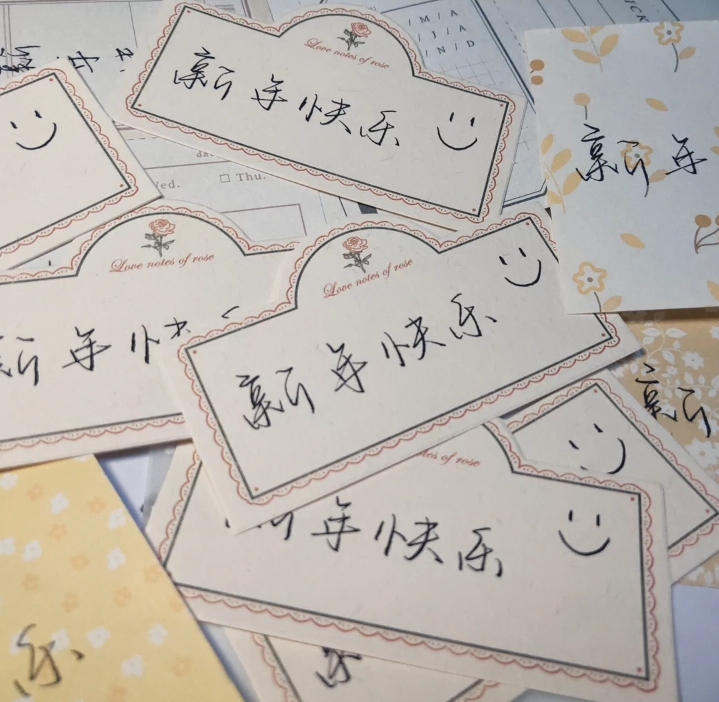 /M/A
I/J/A
/N/D
Love notes of rose
新年快乐
新年
Wed.
Thu.
Love notes of rose
Love notes of rose
新年快乐
新年快
新
tes of rose
年快乐
乐
乐